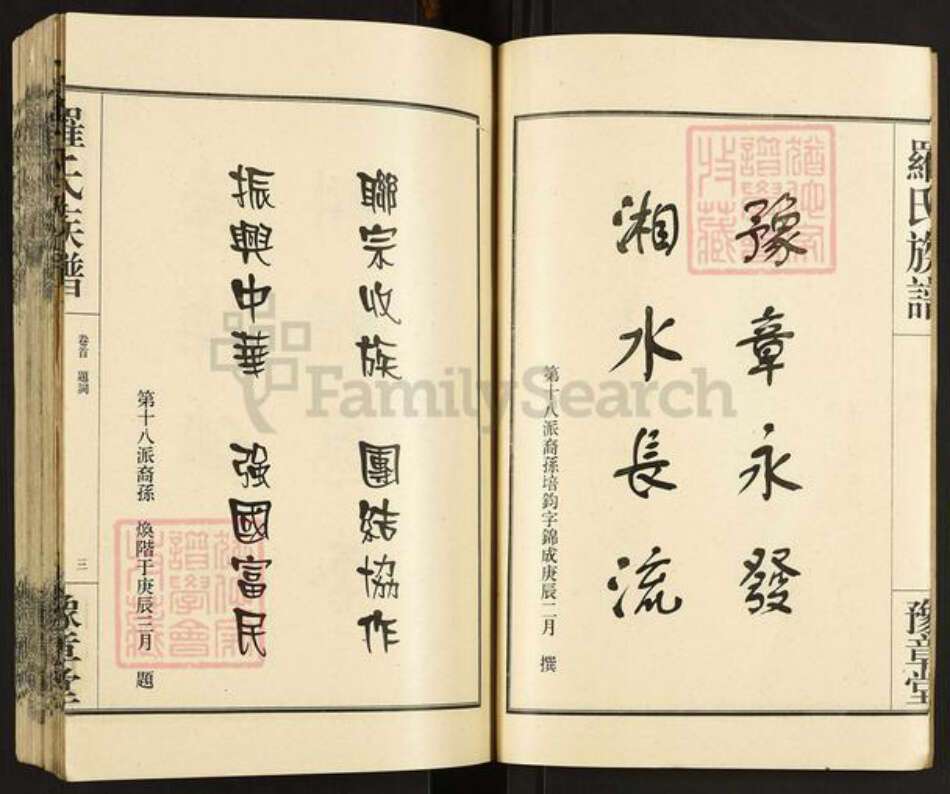 羅氏族譜
豫章堂
豫章永發
湘水長流
第十八派裔孫培鈞字錦成庚辰二月 撰
聯宗收族 團結協作
振興中華 強國富民
第十八派裔孫 煥階于庚辰三月 題
羅氏族譜
卷首 題詞
三
豫章堂
FamilySearch